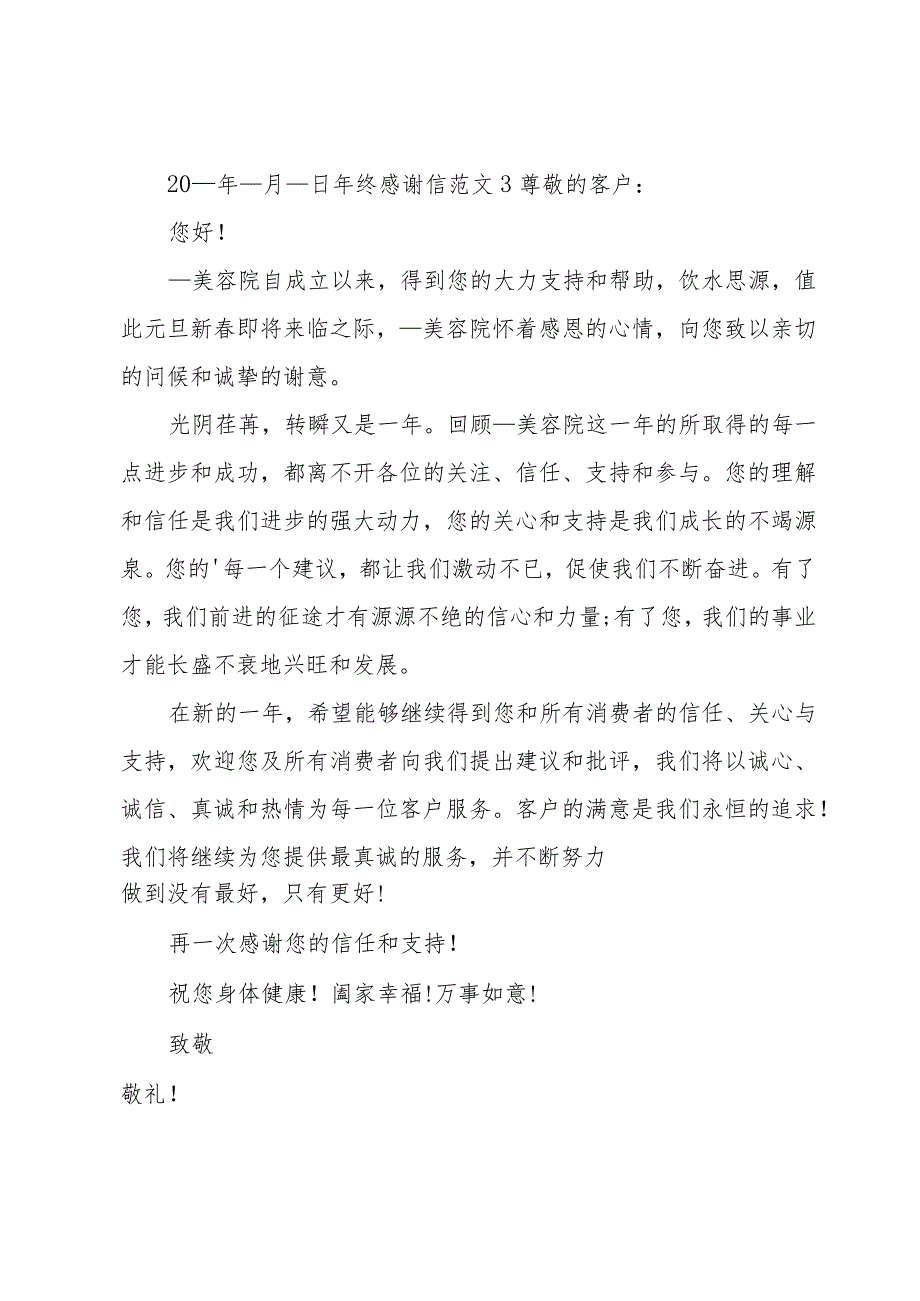 20—年—月—日年终感谢信范文3尊敬的客户：
您好！
—美容院自成立以来，得到您的大力支持和帮助，饮水思源，值
此元旦新春即将来临之际，—美容院怀着感恩的心情，向您致以亲切
的问候和诚挚的谢意。
光阴荏苒，转瞬又是一年。回顾—美容院这一年的所取得的每一
点进步和成功，都离不开各位的关注、信任、支持和参与。您的理解
和信任是我们进步的强大动力，您的关心和支持是我们成长的不竭源
泉。您的'每一个建议，都让我们激动不已，促使我们不断奋进。有了
您，我们前进的征途才有源源不绝的信心和力量;有了您，我们的事业
才能长盛不衰地兴旺和发展。
在新的一年，希望能够继续得到您和所有消费者的信任、关心与
支持，欢迎您及所有消费者向我们提出建议和批评，我们将以诚心、
诚信、真诚和热情为每一位客户服务。客户的满意是我们永恒的追求！
我们将继续为您提供最真诚的服务，并不断努力
做到没有最好，只有更好!
再一次感谢您的信任和支持！
祝您身体健康！阖家幸福!万事如意!
致敬
敬礼！